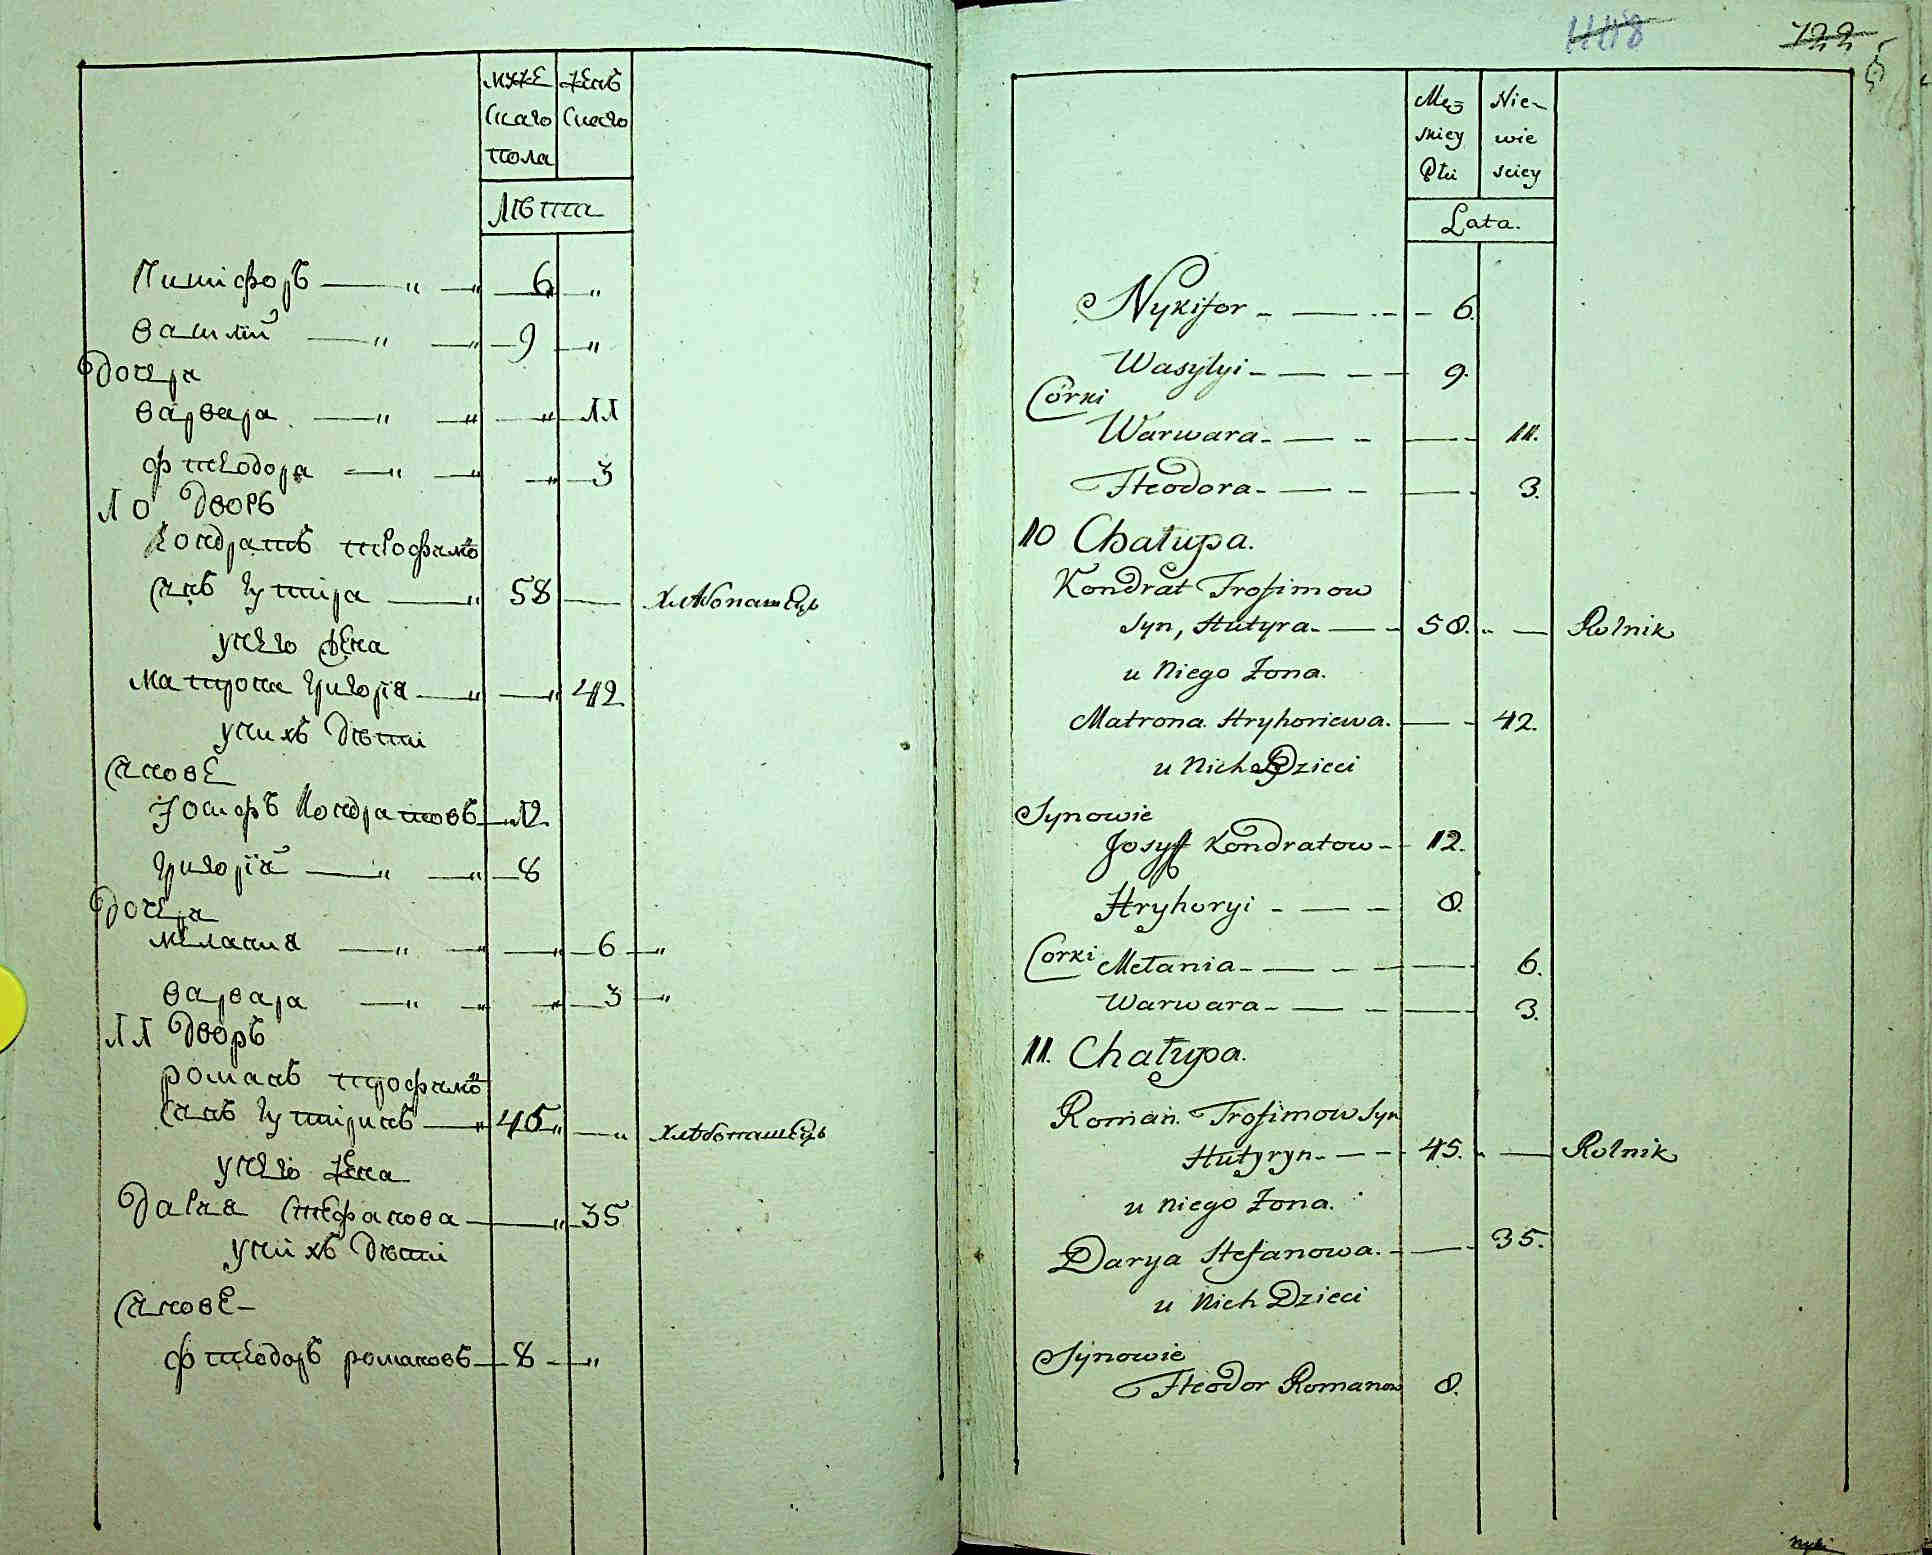 муже женс
скаго скаго
пола
лѣта
Никифоръ — " — " — 6 — "
Василий — " — " — 9 — "
дочеря
варвара — " — " — " — 11
фтеодора — " — " — " — 3
10 дворъ
Кондратъ трофимовъ
сынъ гутира — " 58 — хлѣбопашецъ
у него жена
матрона григория — " — " — 42
у них дѣти
сынове
Iосифъ кондратовъ — 12
григорий — " — " — 8
дочеря
мелания — " — " — " — 6 — "
варвара — " — " — " — 3 — "
11 дворъ
романъ трофимовъ
сынъ гутиринъ — " 45 " — " хлѣбопашецъ
у него жена
даря стефанова — " — 35
у них дѣти
сынове —
фтеодоръ романовъ — 8 — "
722
5
Męz Nie-
skiey wie
Płci sciey
Lata.
Nykifor - — - - 6.
Wasylyi - — - - 9.
Córki
Warwara - — - — - 11.
Fteodora - — - — - 3.
10 Chałupa.
Kondrat Trofimow
Syn, Hutyra. - — - 58. - — Rolnik
u Niego Żona.
Matrona Hryhoriewa. — - 42.
u Nich Dzieci
Synowie
Josyff Kondratow - - 12.
Hryhoryi - — - 8.
Corki Mełania - — - — - 6.
Warwara - — - — - 3.
11. Chałupa.
Roman. Trofimow Syn
Hutyryn. - — - 45. - — Rolnik
u niego Żona.
Darya Stefanowa. - — - 35.
u Nich Dzieci
Synowie
Fteodor Romanow 8.